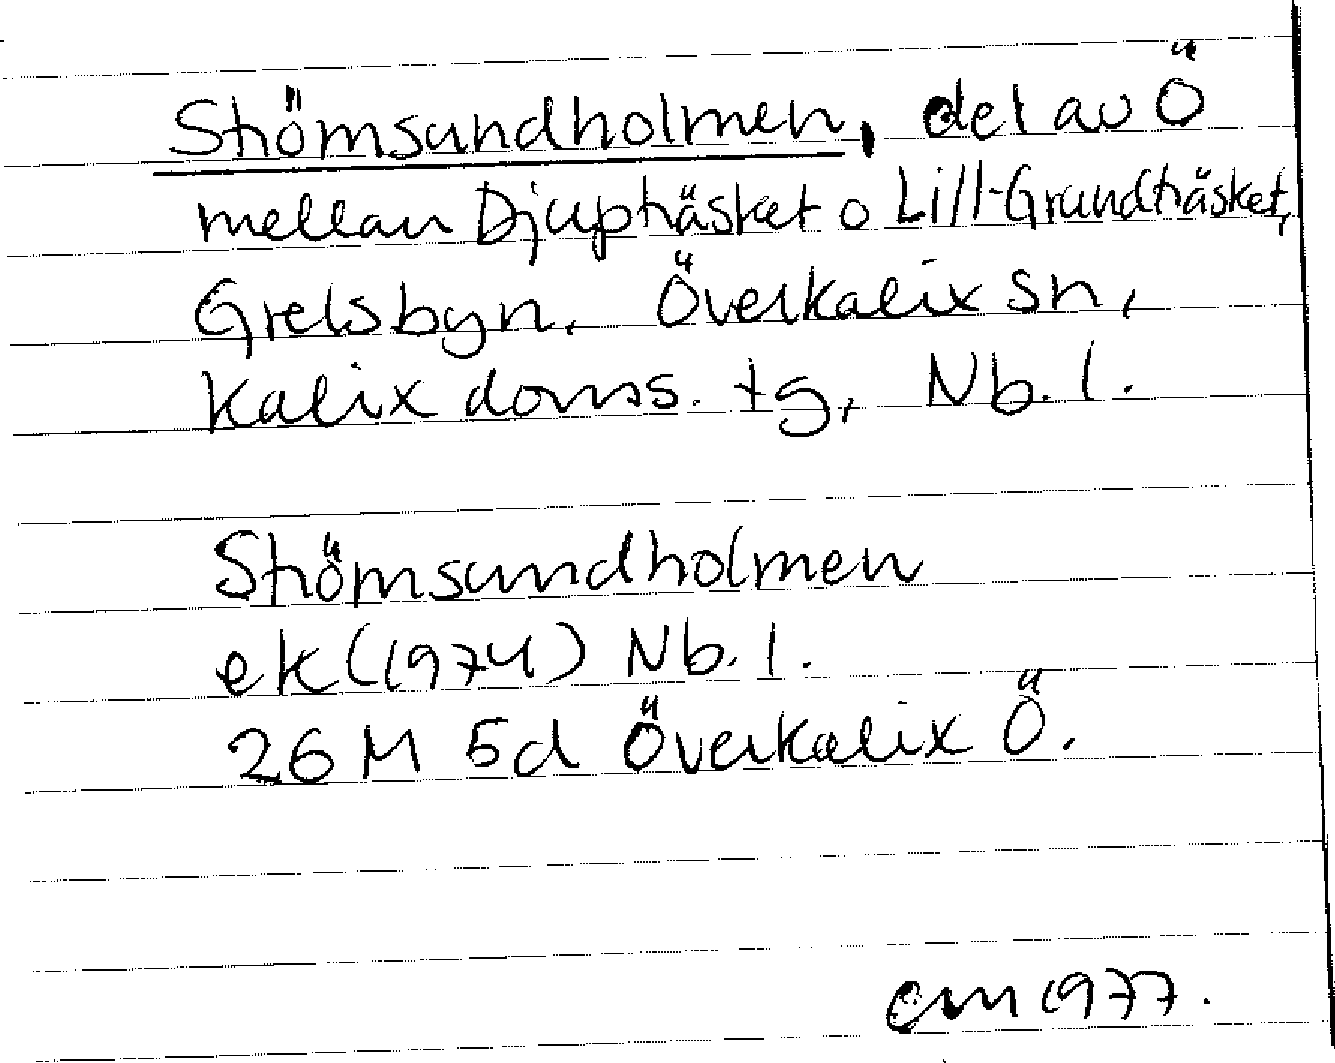 Strömsundholmen, del av Ö
mellan Djupträsket o Lill-Grundträsket,
Grelsbyn, Överkalix sn,
Kalix doms. tg, Nb. l.
Strömsundholmen
ek (1974) Nb. l.
26 M 5d Överkalix Ö.
cm 1977.